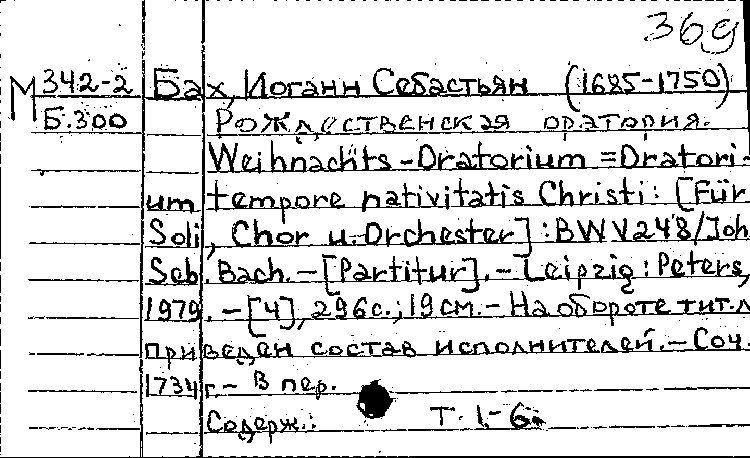 369
М 342-2 Бах, Иоганн Себастьян (1685-1750)
Б.300 Рождественская оратория.
Weihnachts-Oratorium = Oratori-
um tempore nativitatis Christi: [Für
Soli, Chor u. Orchester] : BWV248/Joh.
Seb. Bach. - [Partitur]. - Leipzig: Peters,
1979. - [4], 296с.; 19 см. - На обороте тит.л.
приведен состав исполнителей. - Соч.
1734г. - В пер.
Содерж.: Т. 1.-6.